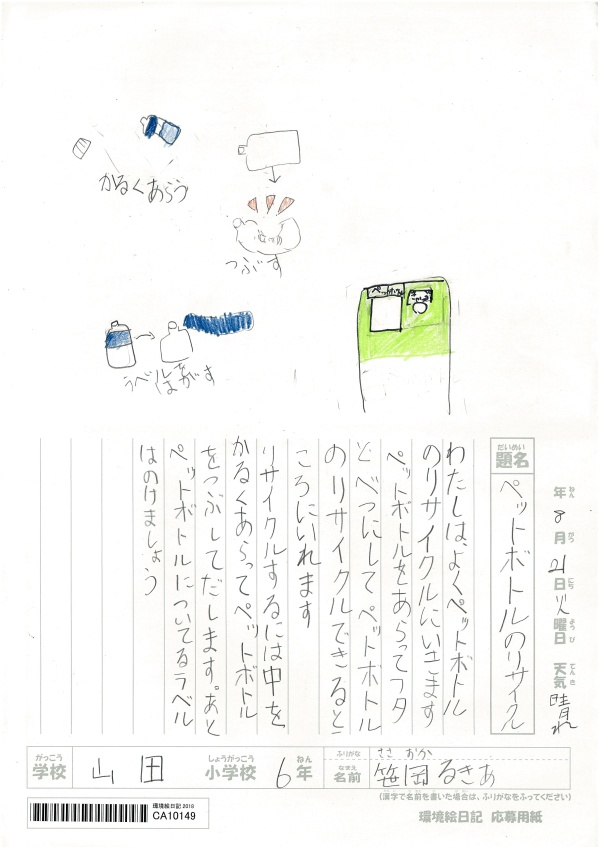 かるくあらう
つぶす
ラベルをはがす
ペットボトル
年8月21日火曜日 天気晴れ
ねん がつ にち ようび てんき
だいめい
題名
ペットボトルのリサイクル
わたしは、よくペットボトル
のリサイクルにいきます
ペットボトルをあらってフタ
とべつにしてペットボトル
のリサイクルできると
ころにいれます
リサイクルするには中を
かるくあらってペットボトル
をつぶしてだします。あと
ペットボトルについてるラベル
はのけましょう
がっこう しょうがっこう ねん
学校 山田 小学校 6年
ふりがな ささ おか
なまえ
名前 笹岡るきあ
(漢字で名前を書いた場合は、ふりがなをふってください)
環境絵日記 2018
CA10149
環境絵日記 応募用紙